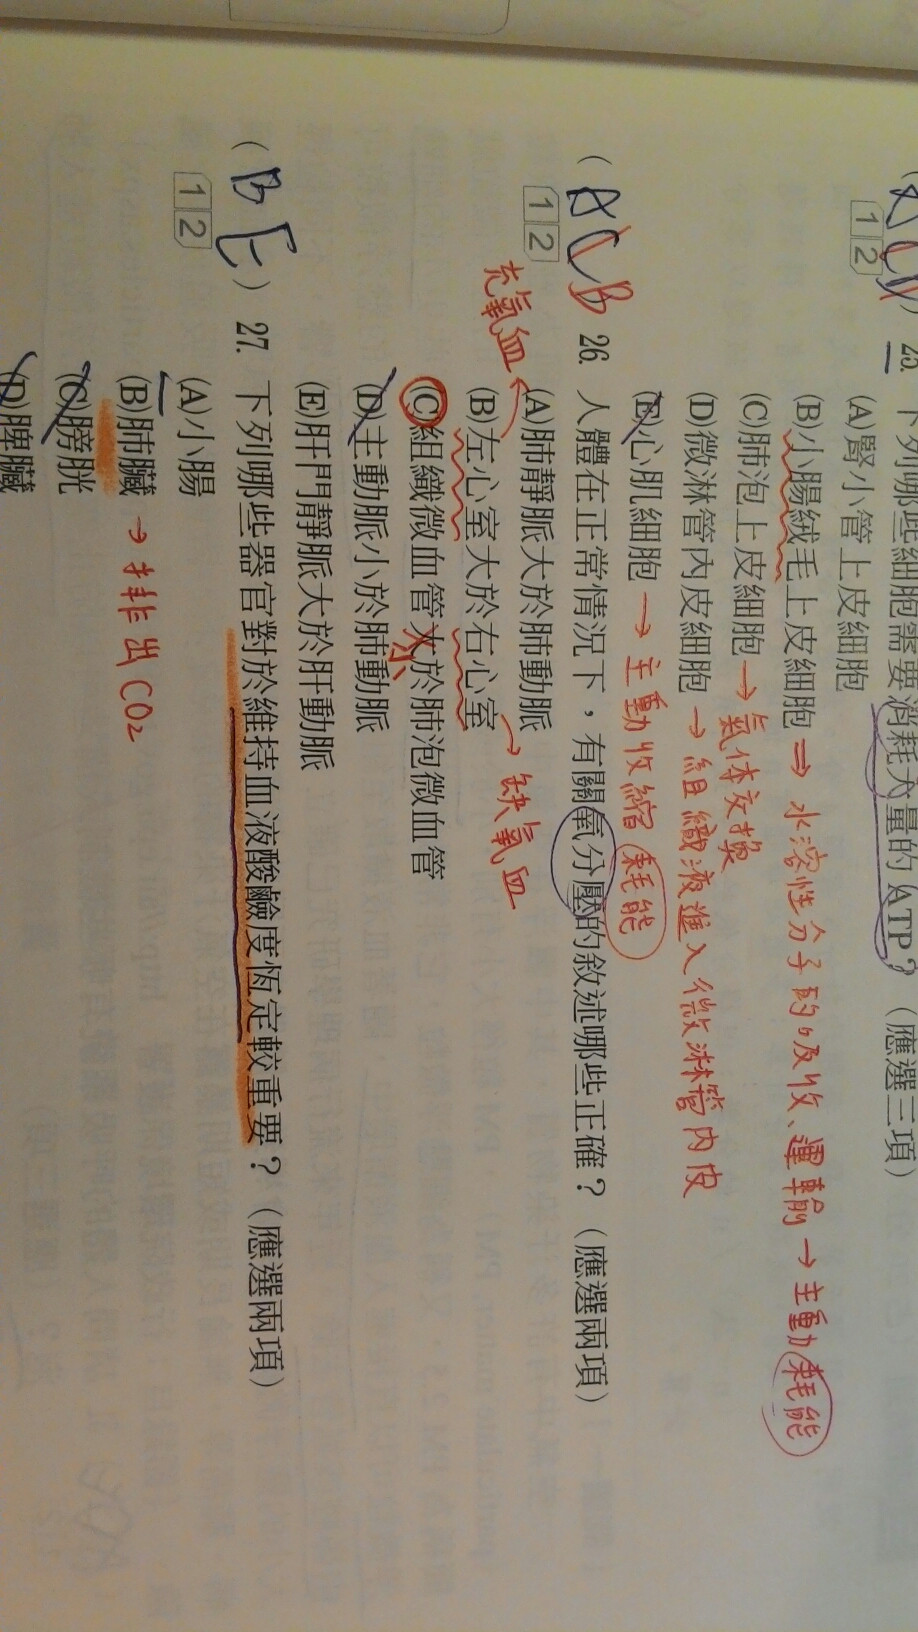 25. 下列哪些細胞需要消耗大量的ATP？（應選三項）
1 2
(A)腎小管上皮細胞
(B)小腸絨毛上皮細胞 ⇒ 水溶性分子的吸收、運輸 → 主動耗能
(C)肺泡上皮細胞 → 氣体交換
(D)微淋管內皮細胞 → 組織液進入微淋管內皮
(E)心肌細胞 → 主動收縮 耗能
(ACB) 26. 人體在正常情況下，有關氧分壓的敘述哪些正確？（應選兩項）
1 2
(A)肺靜脈大於肺動脈
充氧血
(B)左心室大於右心室 → 缺氧血
(C)組織微血管大於肺泡微血管
小
(D)主動脈小於肺動脈
(E)肝門靜脈大於肝動脈
(BE) 27. 下列哪些器官對於維持血液酸鹼度恆定較重要？（應選兩項）
1 2
(A)小腸
(B)肺臟 → 排出CO2
(C)膀胱
(D)脾臟